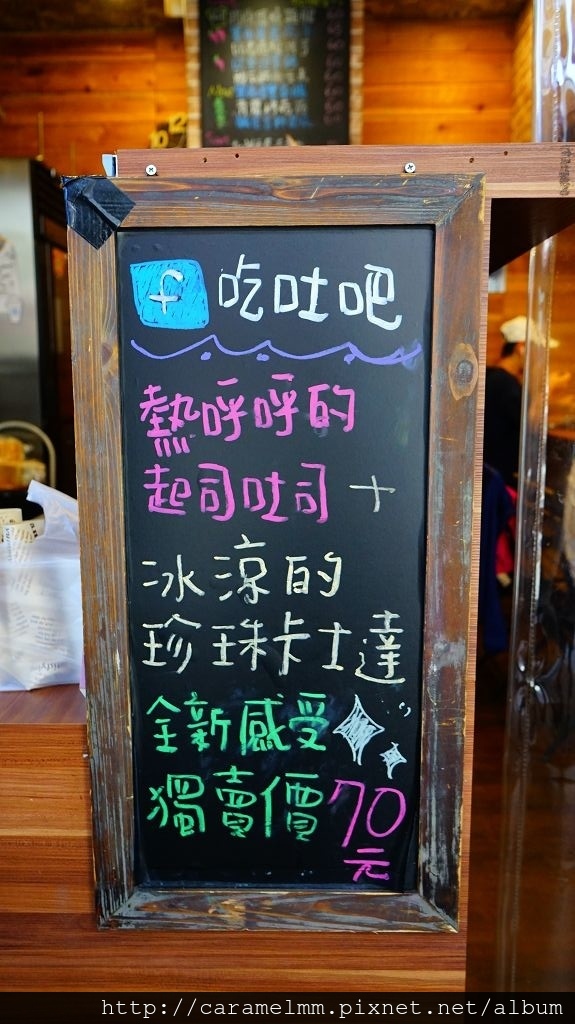 f 吃吐吧
熱呼呼的
起司吐司+
冰涼的
珍珠卡士達
全新感受
獨賣價70
元
http://caramelmm.pixnet.net/album